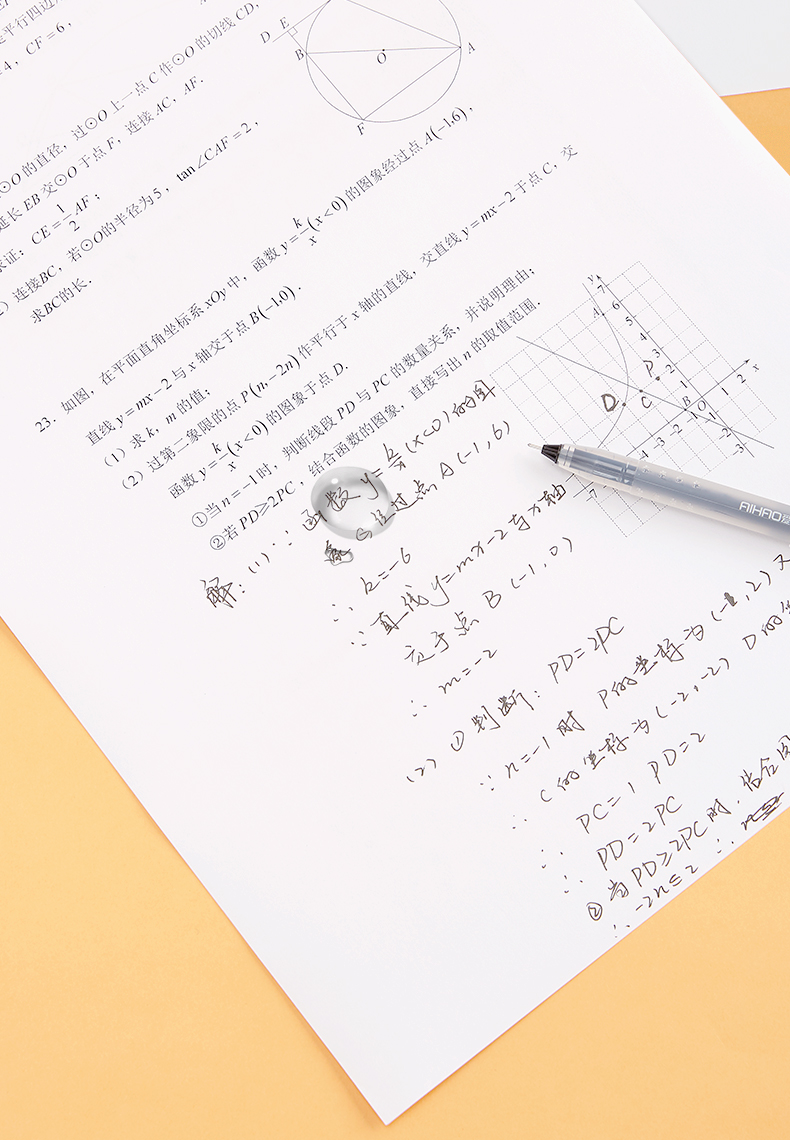 是平行四边形
=4，CF=6，
D E
B O A
F
⊙O的直径，过⊙O上一点C作⊙O的切线CD，
延长EB交⊙O于点F，连接AC，AF．
求证：CE=1/2AF；
）连接BC，若⊙O的半径为5，tan∠CAF=2，
求BC的长．
23．如图，在平面直角坐标系xOy中，函数y=k/x(x<0)的图象经过点A(−1,6)，
直线y=mx−2与x轴交于点B(−1,0)．
（1）求k，m的值；
（2）过第二象限的点P(n,−2n)作平行于x轴的直线，交直线y=mx−2于点C，交
函数y=k/x(x<0)的图象于点D．
①当n=−1时，判断线段PD与PC的数量关系，并说明理由；
②若PD≥2PC，结合函数的图象，直接写出n的取值范围．
y
7
A 6
5
3
P 2
D C 1 1 2 x
B O
-4 -3 -2 -1
-2
-3
-7
AIHAO
解：(1)∵函数y=k/x(x<0)的图
象经过点A(-1,6)
∴k=-6
∵直线y=mx-2与x轴
交于点B(-1,0)
∴m=-2
(2)①判断：PD=2PC
∵n=-1时 P的坐标为(-1,2)又
∴C的坐标为(-2,-2) D的坐
∴PC=1 PD=2
∴PD=2PC
②当PD≥2PC时，结合图
∴-2n≤2 ∴